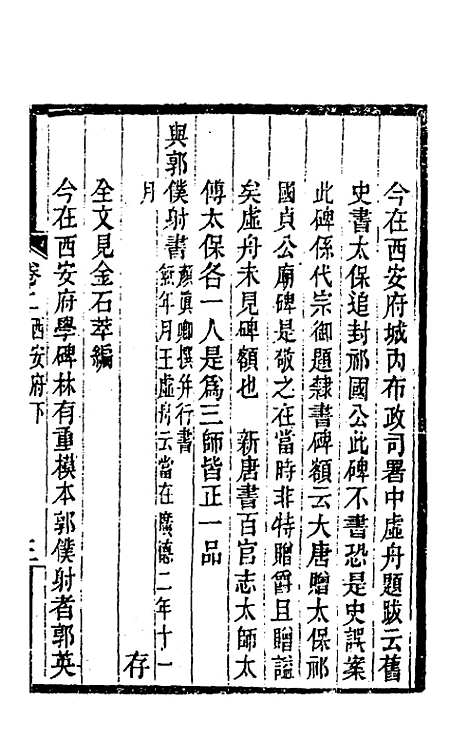 今在西安府城內布政司署中虛舟題跋云舊
史書太保追封祁國公此碑不書恐是史誤案
此碑係代宗御題隸書碑額云大唐贈太保祁
國貞公廟碑是敬之在當時非特贈爵且贈諡
矣虛舟未見碑額也　新唐書百官志太師太
傅太保各一人是爲三師皆正一品
與郭僕射書顏眞卿撰幷行書
無年月王虛舟云當在廣德二年十一
月　存
全文見金石萃編
今在西安府學碑林有重模本郭僕射者郭英
卷二西安府下　三